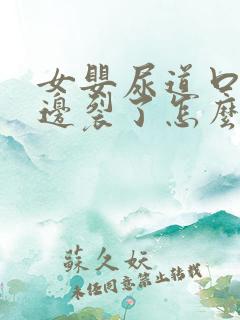 女嬰尿道口
邊裂了怎麼
蘇久妖
未經同意禁止轉載